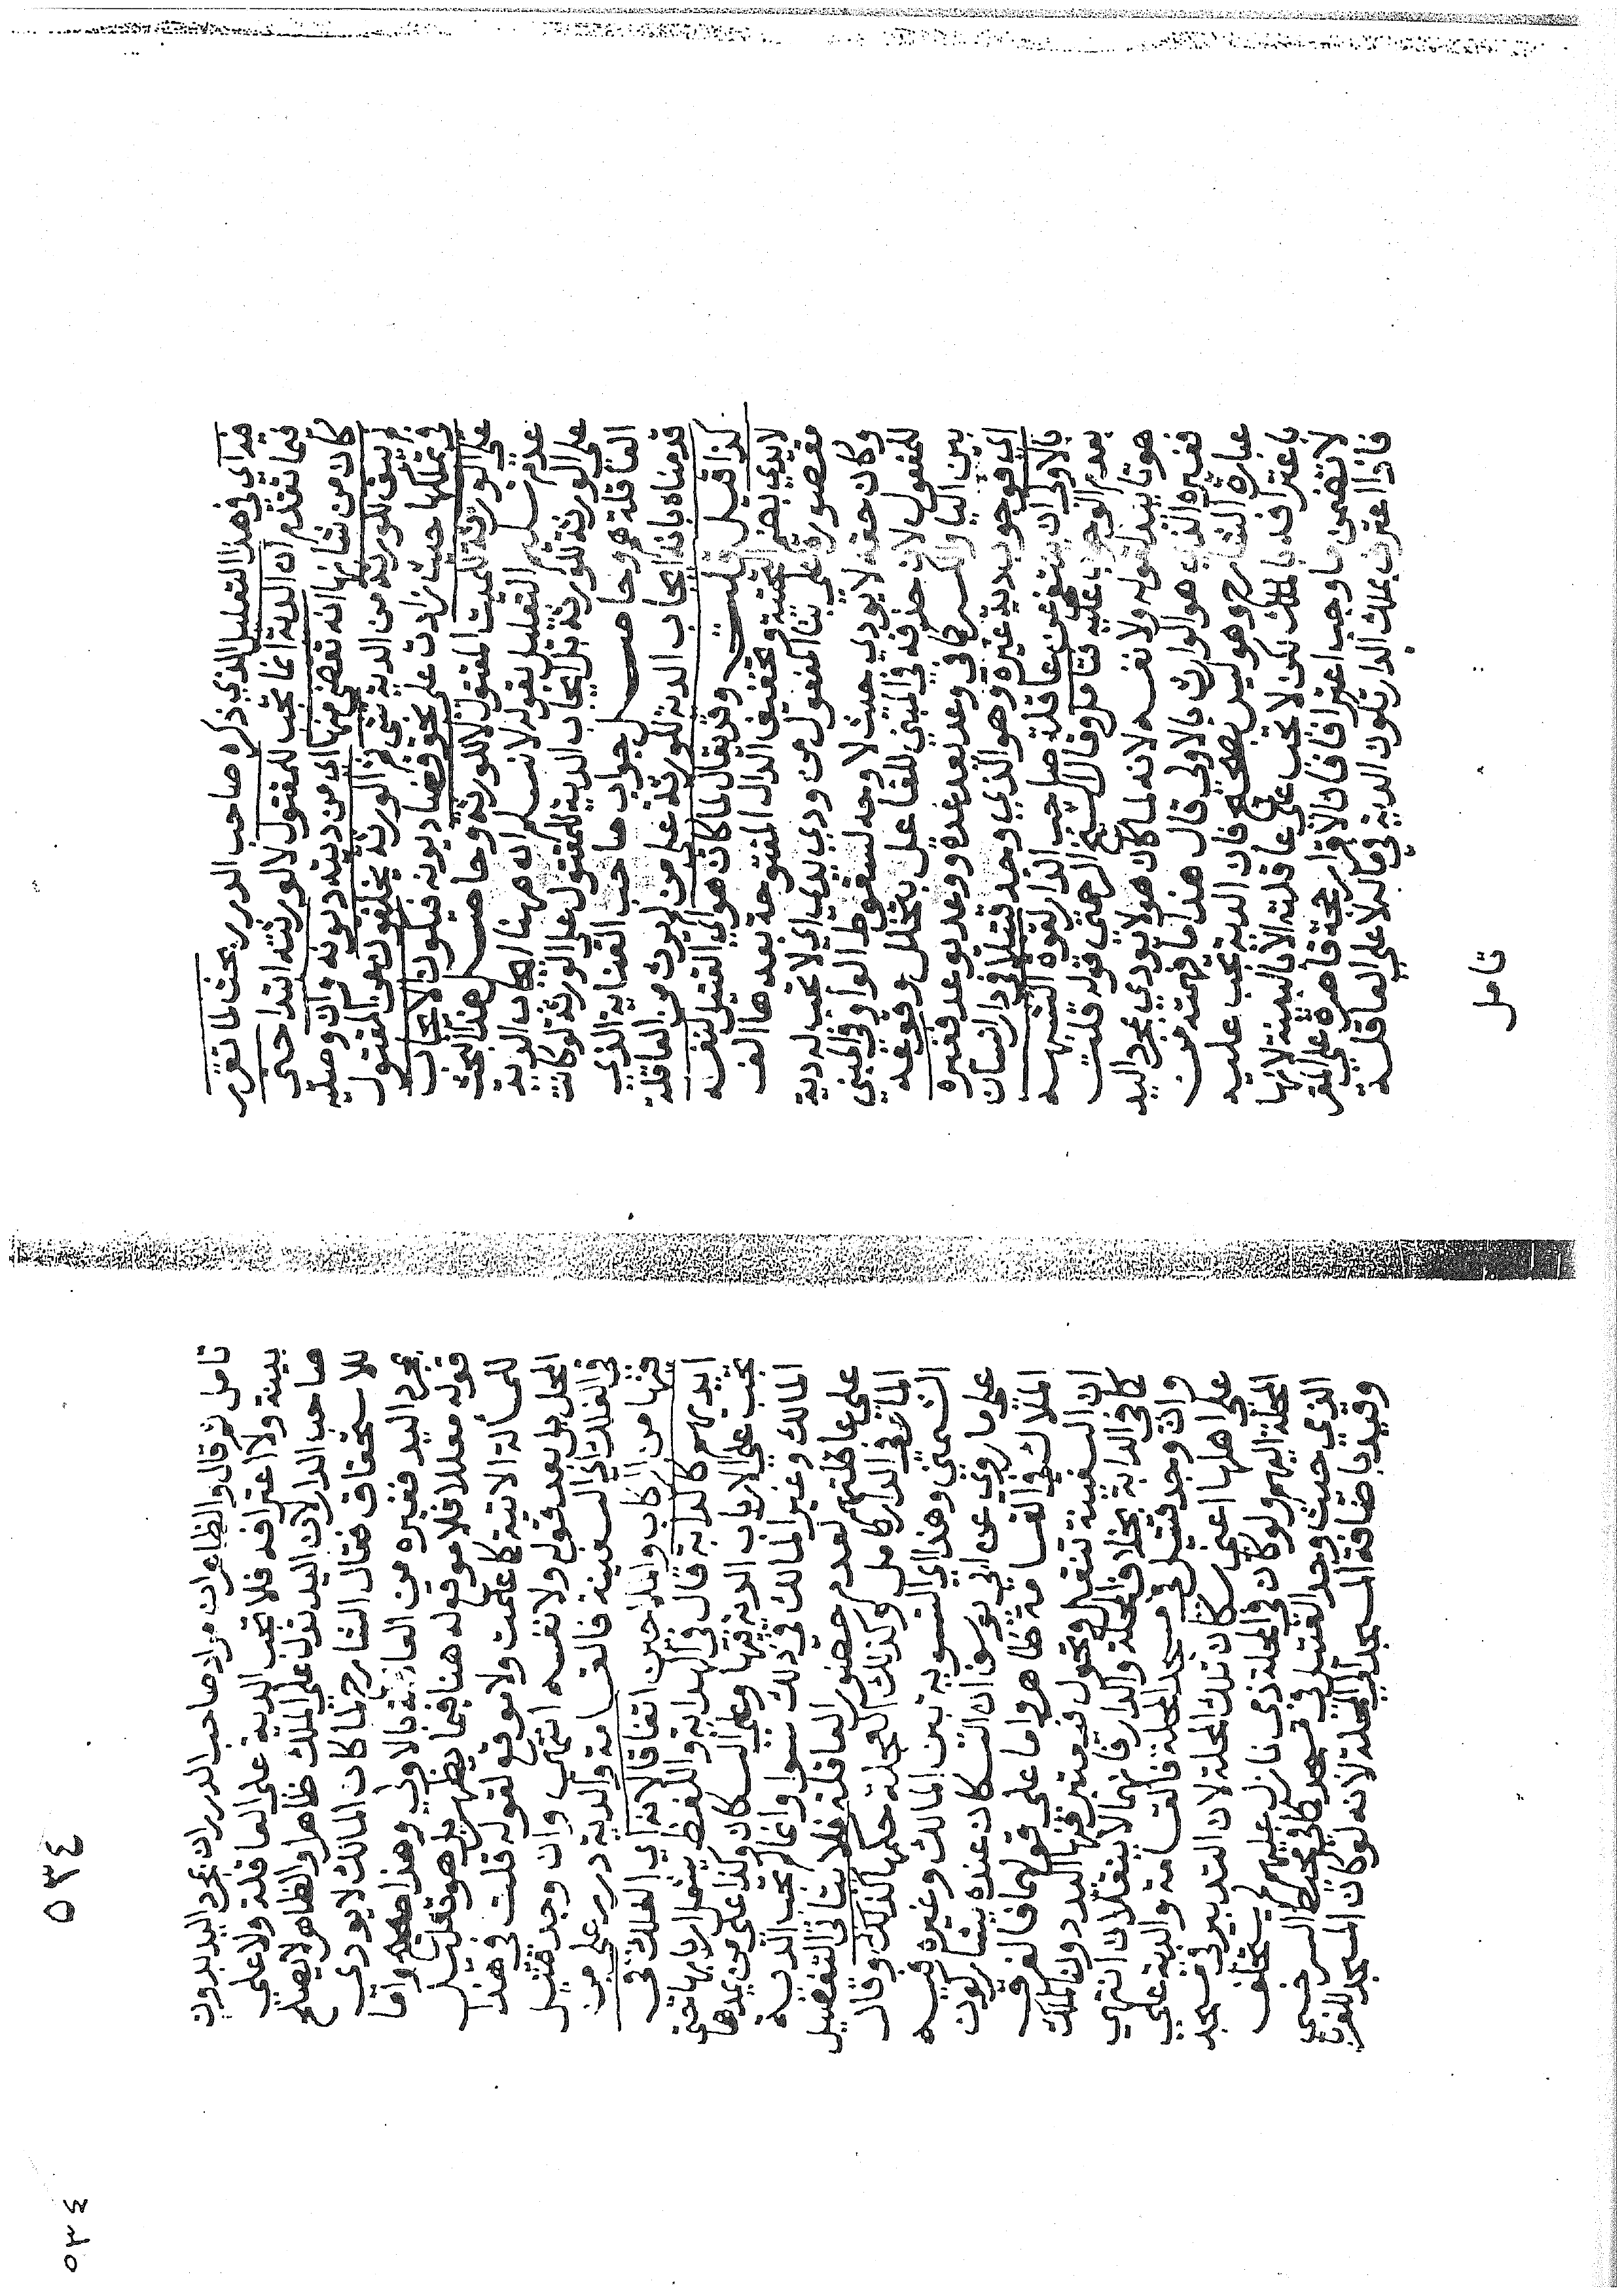 فراي في هذا التعليل الذي ذكره صاحب الدرر بحث لما تقرر
فيما تقدم ان الدية انما تجب للمقتول لا لورثته ابتدا حتى
كان من شانها انه تقضى منها اي من ديته ديونه وان وصليه
لم يبق للورثة من الدية شي ثم الورثة يخلفونه اي المقتول
في تملكها حيث زادت على نحو قضا ديونه فيكون الايجاب
على الورثة للميت المقتول لا للورثة وحاصل هذا البحث
عدم تسليم التعليل بقوله لا نسلم انه هنا ايجاب الدية
على الورثة للورثة بل ايجاب الدية للمقتول على الورثة لو كانت
العاقلة هم وحاصل جواب صاحب العناية الذي
قدمناه بانه ايجاب الدية للورثة على من لم يرث من العاقلة
كذا قيل قلت وقد يقال لما كان هو اي القتيل لنفسه
لا يدي بضم التحتية وتخفيف الدال المفتوحة بعدها الف
مقصورة على بنا المفعول من ودي يدي اي لا تجب له دية
وكان حقه لا يودي حيث لا وجه لسقوط الواو في المبني
للمفعول لان حذفه في المبني للفاعل بتخلل وقوعه
بين اليا والكسر كما في وعد يعد عدة ووعد يوعد فغيره
اي فوجوب دية غيره وهو الذي وجد قتيلا في دار انسان
بالاولى ان ينتفي عن عاقلة صاحب الدار لقوة الشبهة
بعدم الوجوب عليه فتامل وقال الشيخ الرحمتي قوله قلت
هو تاييد لقوله ولا نفسه لانه لما كان هو لا يودي بمجرد اليد
فغيره الذي هو الوارث بالاولى قال هذا ما فهمته من
عبارة الشارح وهو ليس بصحيح فان الدية تجب عليه
باعترافه بالملك لكن لا تجب على عاقلته الا بالبينة لانها
لا تضمن ما وجب اعترافا فان الاقرار حجة قاصرة على المقر
فاذا اعترف بملك الدار تكون الدية في ماله لا على العاقلة
تامل
٥٣٤
تامل ثم قال والظاهر ان مراد صاحب الدرر ان بمجرد اليد بدون
بينة ولا اعترافه فلا تجب الدية على العاقلة ولا على
صاحب الدار لان اليد تدل على الملك ظاهرا والظاهر لا يصلح
للاستحقاق فقال الشارح لما كان المالك لا يودي
بمجرد اليد فغيره من العاقلة بالاولى وهذا صحيح واما
قوله معللا فلا موقع له هنا فيما يظهر بل هو تعليل
للمسألة الاتية كما علمت ولا موقع لقوله قلت في هذا
المحل بل بعد قوله ولا نفسه انتهى وان وجد قتيل
في الفلك اي السفينة فالقسامة والدية درر على من
فيها من الركاب والملاحين اتفاقا لانه اي الفلك في
ايديهم كالدابة قال في الهداية واللفظ يشمل اربابها حتى
تجب على الارباب الدية فيها وعلى السكان وكذا على من يمدها
المالك وغير المالك في ذلك سوا وانما لم تجب الدية
على عاقلتهم لعدم حضور العاقلة فلا يتاتى التفصيل
المار في الدار كامل وكذلك العجلة حكمها كذلك وقال
الشمني وهذا اي التسوية بين المالك وغيره فيه
على ما روي عن ابي يوسف ان السكان عنده يشاركون
الملاك في القسامة ظاهر واما على قولهما فالفرق
ان السفينة تنقل وتحول فيعتبر فيها اليد دون الملك
كما في الدابة بخلاف المحلة والدار فانهما لا ينقلان انتهى
وان وجد قتيل في مسجد المحلة فالقسامة والدية على
على اهلها اعني سكان تلك المحلة لان التدبير في مسجد
المحلة اليهم ولو كان في المحلة ذى نازل عليهم يستحلف
الذي حيث وجد القتيل في مسجد كما في محيط السرخسي
وقيد باضافة المسجد الى المحلة لانه لو كان المسجد للغربا
٥٣٤